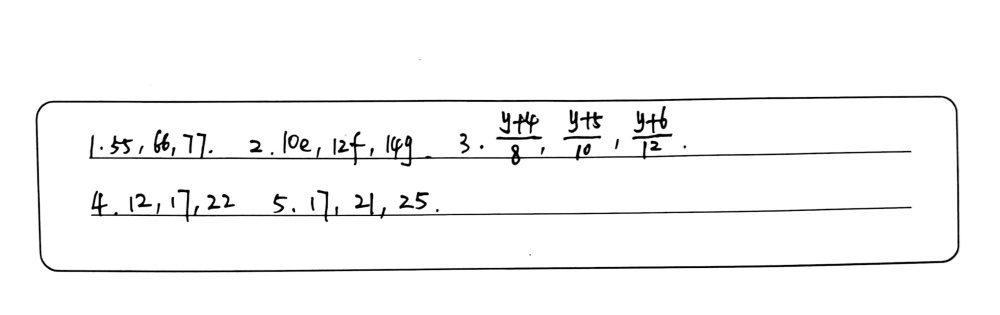 1.55, 66, 77. 2. 10e, 12f, 14g. 3. \frac{y+4}{8}, \frac{y+5}{10}, \frac{y+6}{12}.
4. 12, 17, 22 5. 17, 21, 25.